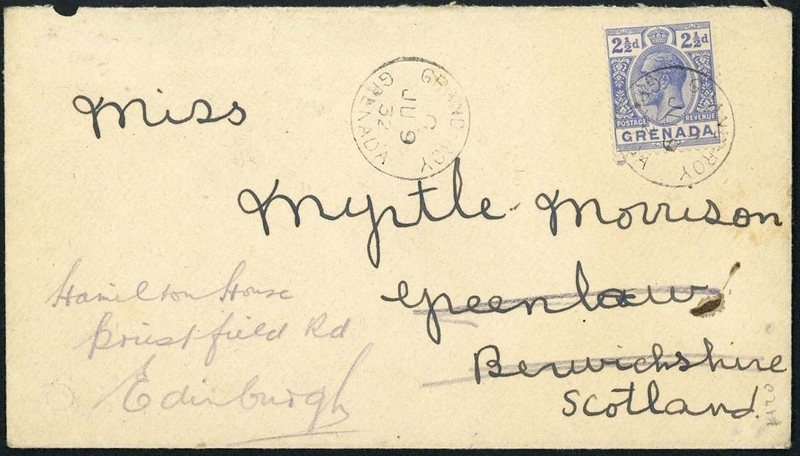 GRAND ROY
C
JU 9
32
GRENADA
2½d 2½d
POSTAGE REVENUE
GRENADA
Miss
Myrtle Morrison
Greenlaw
Berwickshire
Scotland.
Hamilton House
Priestfield Rd
Edinburgh